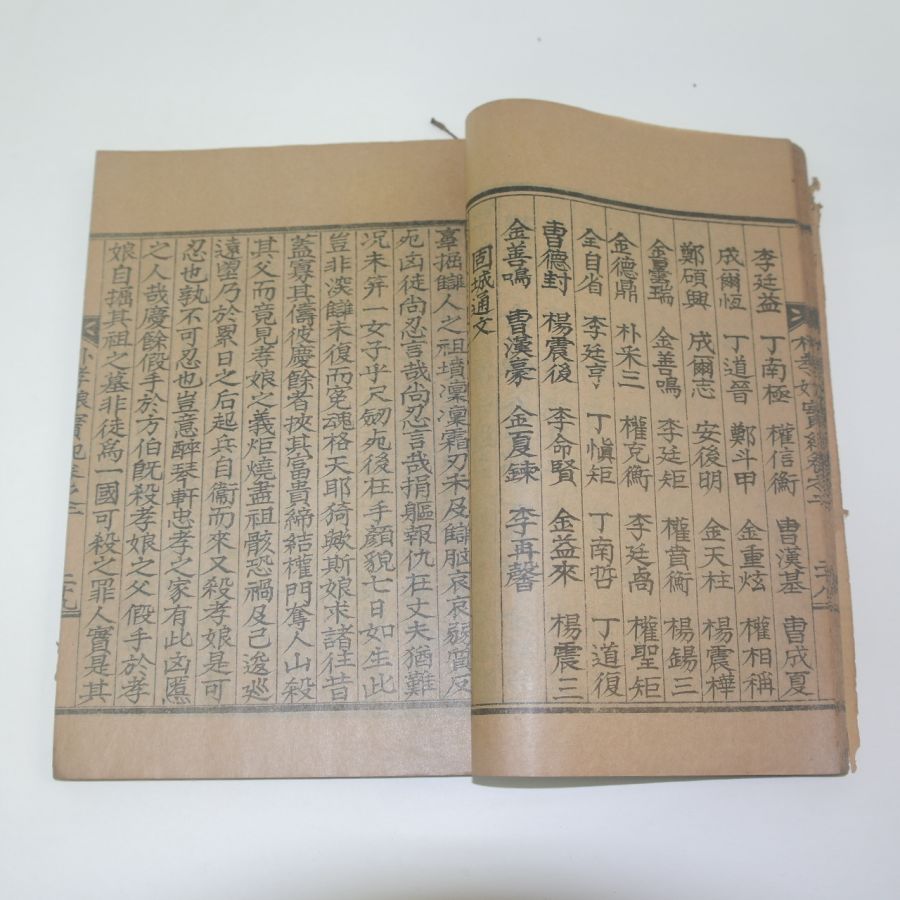 李廷益 丁南極 權信衡 曺漢基 曺成夏
成爾恆 丁道晉 鄭斗甲 金重炫 權相稱
鄭碩興 成爾志 安後明 金天柱 楊震樺
金善鳴 李廷矩 權賁衡 楊錫三
金德鼎 朴来三 權克衡 李廷卨 權聖矩
全自省 李廷亨 丁愼矩 丁南哲 丁道復
曺德封 楊震後 李命賢 金益来 楊震三
金善鳴 曺漢豪 金夏鍊 李再馨
固城通文
辜掘讎人之祖墳凜凜霜刃未及讎脳哀哀弱質反
死凶徒尙忍言哉尙忍言哉捐軀報仇在丈夫猶難
况未笄一女子乎尺劒死後在手顔貌七日如生此
豈非深讎未復而寃魂格天耶猗歟斯娘求諸往昔
盖寡其儔彼慶餘者挾其富貴締結權門奪人山殺
其父而竟見孝娘之義炬燒盡祖骸恐禍及己逡巡
遠望乃於累日之后起兵自衞而来又殺孝娘是可
忍也孰不可忍也豈意醉琴軒忠孝之家有此凶慝
之人哉慶餘假手於方伯旣殺孝娘之父假手於孝
娘自掘其祖之墓非徒爲一國可殺之罪人實是其
朴孝娘實紀卷之二 二九